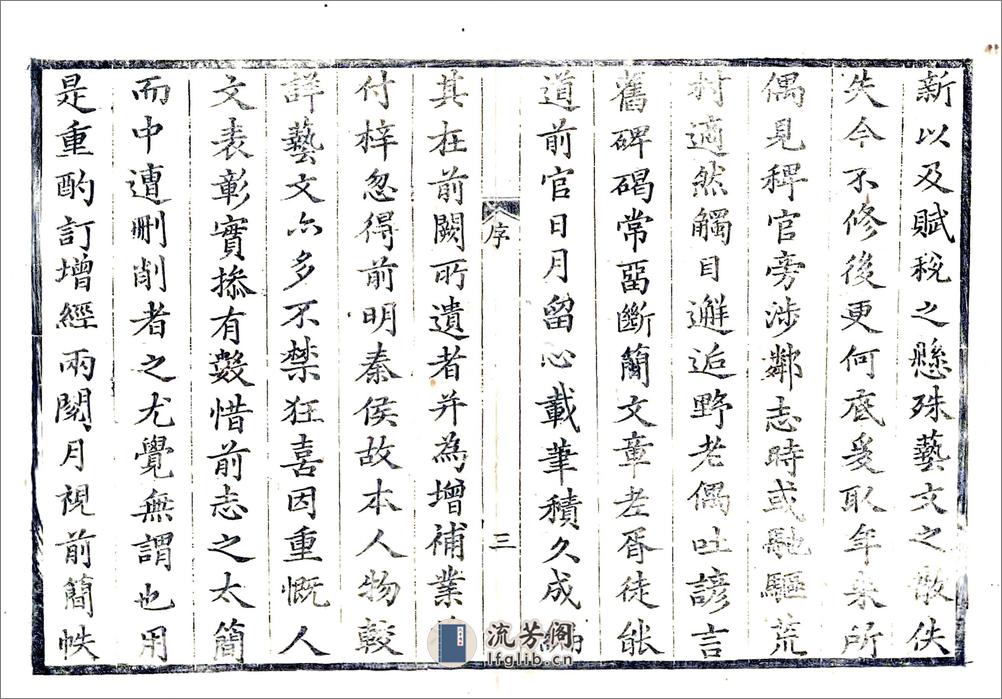 新以及賦稅之懸殊藝文之散佚
失今不修後更何底爰取年來所
偶見稗官旁涉鄰志時或馳驅荒
村適然觸目邂逅野老偶吐諺言
舊碑碣常畱斷簡文章老胥徒能
道前官日月留心載筆積久成編
序
三
其在前闕所遺者并為增補業
付梓忽得前明秦侯故本人物較
詳藝文亦多不禁狂喜因重慨人
文表彰實摻有數惜前志之太簡
而中遭刪削者之尤覺無謂也用
是重酌訂增經兩閱月視前簡帙
流芳阁
lfglib.cn